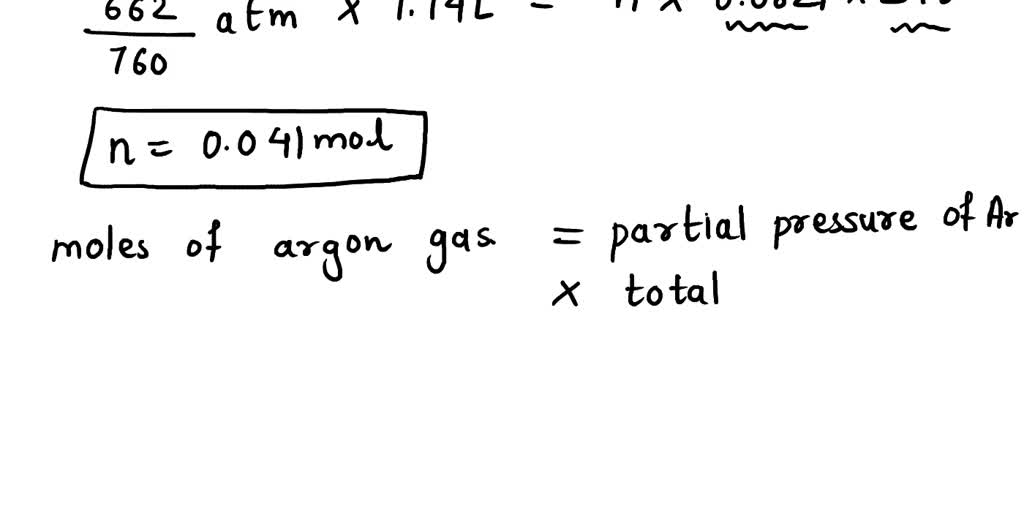 662
760 atm x 1.14L = n x 0.0821 x
n = 0.041 mol
moles of argon gas = partial pressure of Ar
x total